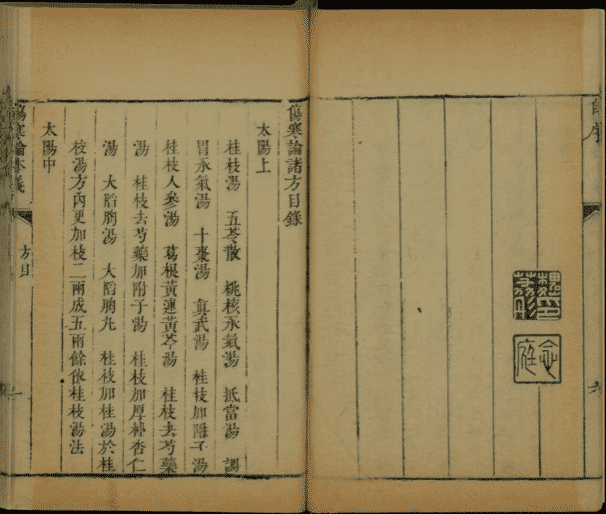 自序
念庭
傷寒論諸方目錄
太陽上
桂枝湯　五苓散　桃核承氣湯　抵當湯　調
胃承氣湯　十棗湯　眞武湯　桂枝加附子湯
桂枝人參湯　葛根黃連黃芩湯　桂枝去芍藥
湯　桂枝去芍藥加附子湯　桂枝加厚朴杏仁
湯　大陷胸湯　大陷胸丸　桂枝加桂湯於桂
枝湯方內更加枝二兩成五兩餘依桂枝湯法
太陽中
傷寒論本義　方目　一